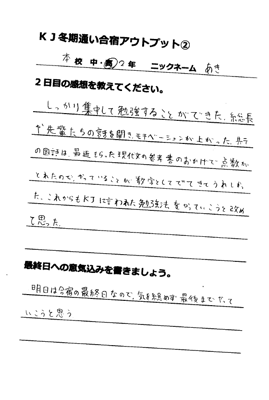 KJ冬期通い合宿アウトプット②
本校 中・高 2年 ニックネーム あき
2日目の感想を教えてください。
しっかり集中して勉強することができた。総長
や先輩たちの話を聞き、モチベーションが上がった。
の国語は最近もらった現代文の参考書のおかげで点数が
とれたので、やっていることが数字としてでてきてうれしかっ
た。これからもKJに言われた勉強法をやっていこうと改め
て思った。
最終日への意気込みを書きましょう。
明日は合宿の最終日なので、気を緩めず最後までやって
いこうと思う